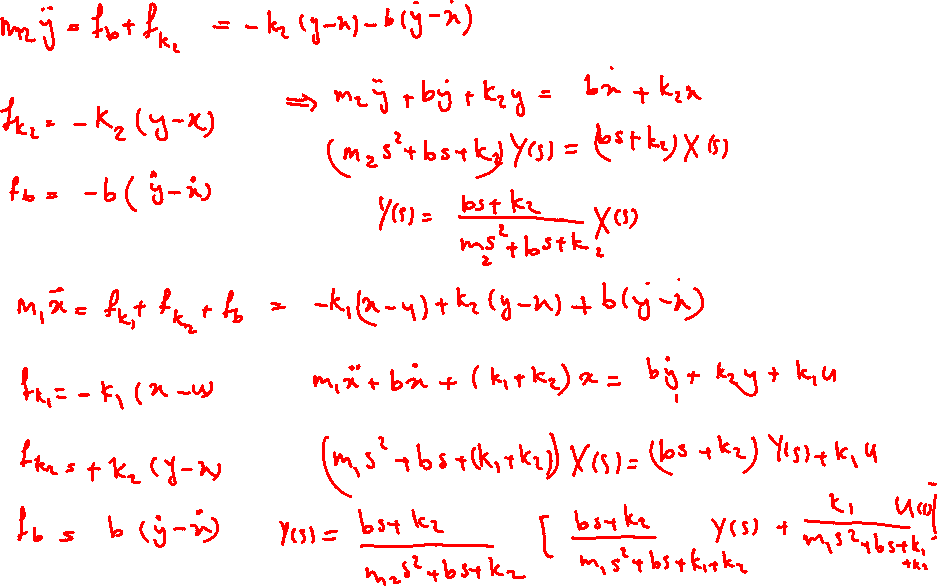 m₂ÿ = f_b + f_{k₂} = -k₂(y-x) - b(ẏ-ẋ)
f_{k₂} = -k₂(y-x)
⇒ m₂ÿ + bẏ + k₂y = bẋ + k₂x
f_b = -b(ẏ-ẋ)
(m₂s²+bs+k₂)Y(s) = (bs+k₂)X(s)
Y(s) = (bs+k₂)/(m₂s²+bs+k₂) X(s)
m₁ẍ = f_{k₁} + f_{k₂} + f_b = -k₁(x-u) + k₂(y-x) + b(ẏ-ẋ)
f_{k₁} = -k₁(x-u)
m₁ẍ + bẋ + (k₁+k₂)x = bẏ + k₂y + k₁u
f_{k₂} = +k₂(y-x)
(m₁s²+bs+(k₁+k₂))X(s) = (bs+k₂)Y(s)+k₁u
f_b = b(ẏ-ẋ)
Y(s) = (bs+k₂)/(m₂s²+bs+k₂) [ (bs+k₂)/(m₁s²+bs+k₁+k₂) Y(s) + k₁/(m₁s²+bs+k₁+k₂) U(s) ]